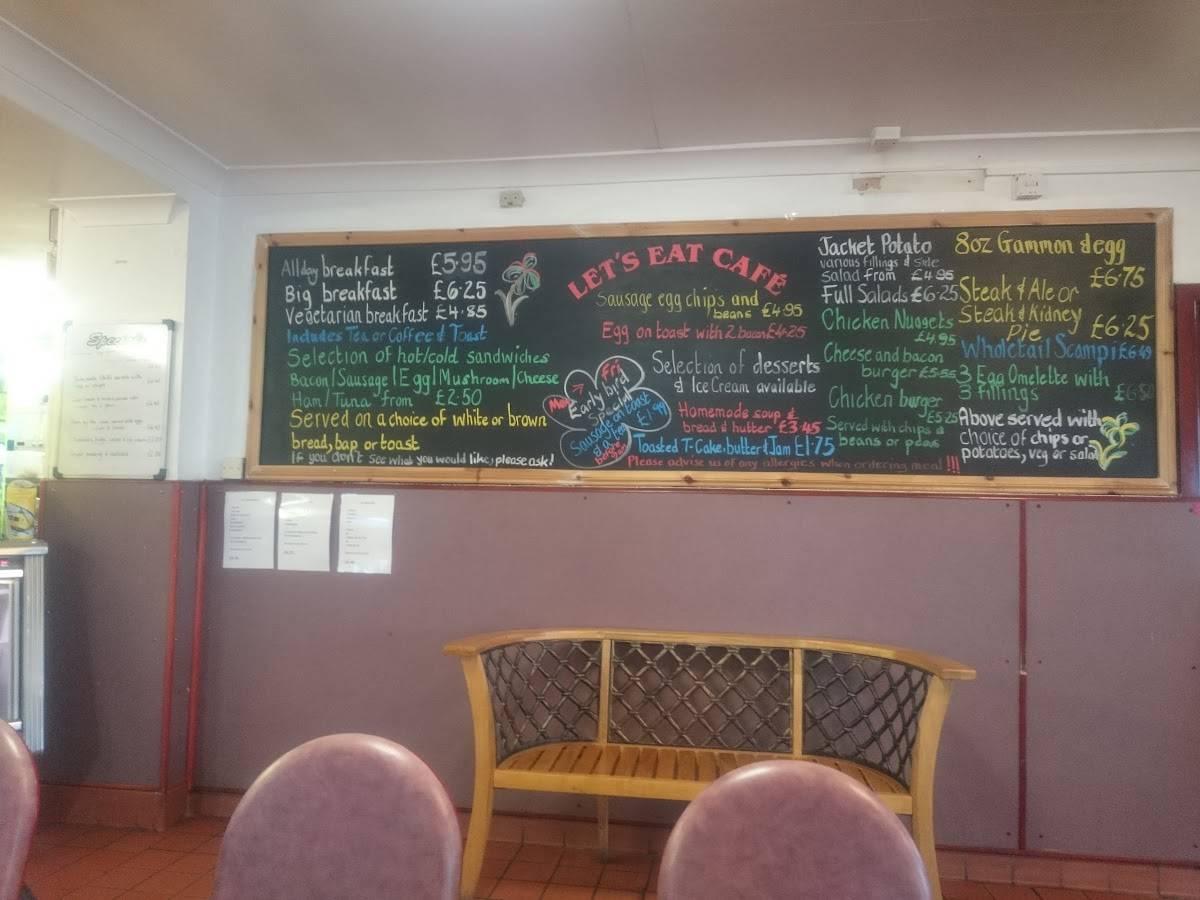 All day breakfast £5·95
Big breakfast £6·25
Vegetarian breakfast £4·85
Includes Tea or Coffee & Toast
Selection of hot/cold sandwiches
Bacon/Sausage/Egg/Mushroom/Cheese
Ham/Tuna from £2·50
Served on a choice of white or brown
bread, bap or toast
If you don't see what you would like, please ask!
LET'S EAT CAFÉ
Sausage egg chips and
beans £4·95
Egg on toast with 2 bacon £4·25
Mon → Fri
Early bird
special
Sausage on toast
& a Tea £1·99
before 9am
Selection of desserts
& Ice Cream available
Homemade soup &
bread & butter £3·45
Toasted T-Cake, butter & Jam £1·75
Please advise us of any allergies when ordering meal !!!
Jacket Potato
various fillings & side
salad from £4·95
Full Salads £6·25
Chicken Nuggets
£4.95
Cheese and bacon
burger £5·55
Chicken burger
£5·25
Served with chips
beans or peas
8oz Gammon & egg
£6·75
Steak & Ale or
Steak & Kidney
Pie £6·25
Wholetail Scampi £6·49
3 Egg Omelette with
3 fillings
Above served with
choice of chips or
potatoes, veg or salad
Specials